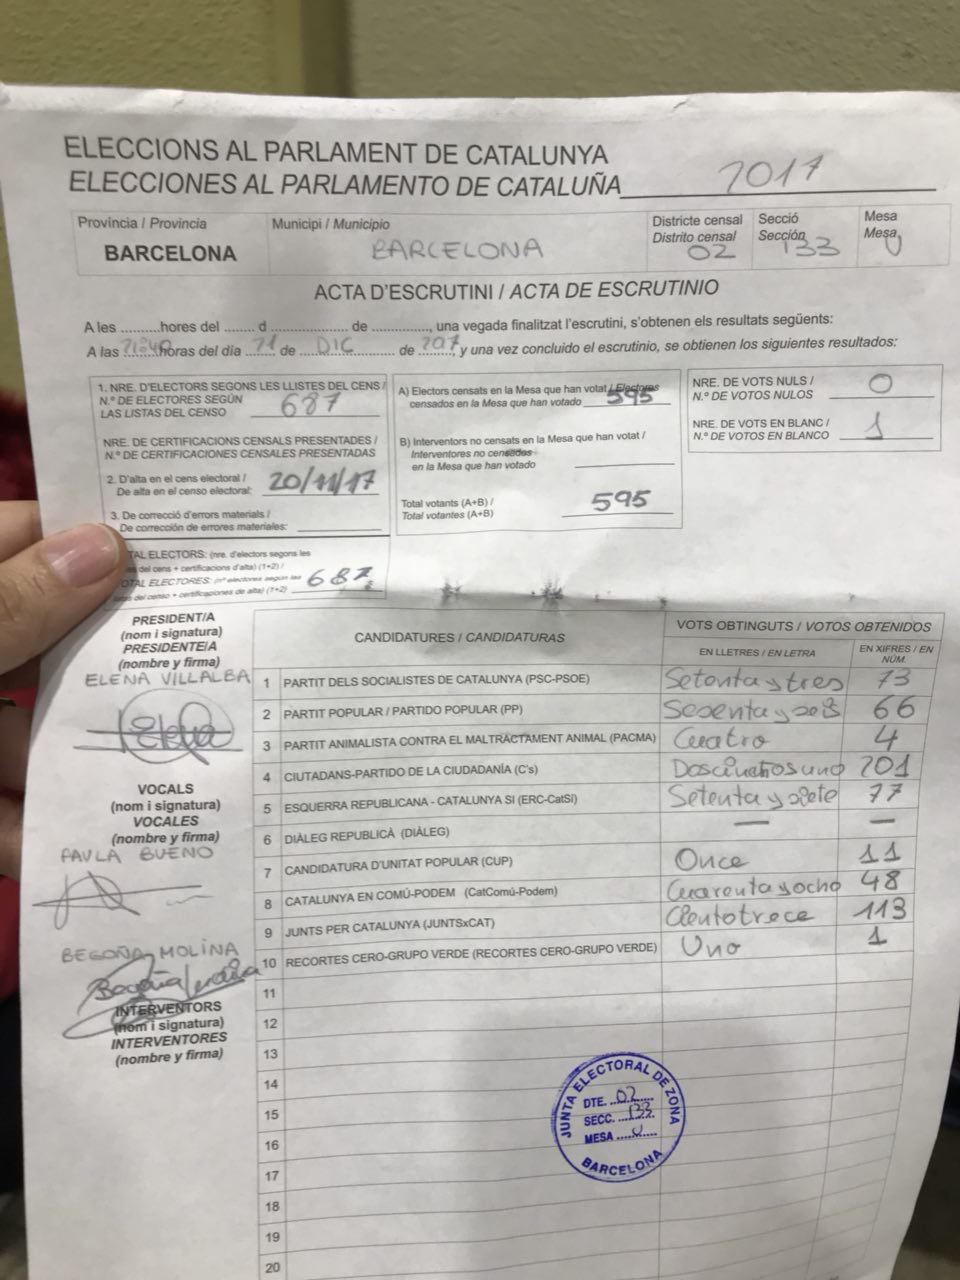 ELECCIONS AL PARLAMENT DE CATALUNYA
ELECCIONES AL PARLAMENTO DE CATALUÑA 2017
Província / Provincia
BARCELONA
Municipi / Municipio
BARCELONA
Districte censal
Distrito censal
02
Secció
Sección
133
Mesa
Mesa
U
ACTA D'ESCRUTINI / ACTA DE ESCRUTINIO
A les ..........hores del ........ d .................... de ..............., una vegada finalitzat l'escrutini, s'obtenen els resultats següents:
A las ..........horas del día 21 de DIC de 2017 y una vez concluido el escrutinio, se obtienen los siguientes resultados:
1. NRE. D'ELECTORS SEGONS LES LLISTES DEL CENS /
N.º DE ELECTORES SEGÚN
LAS LISTAS DEL CENSO 687
NRE. DE CERTIFICACIONS CENSALS PRESENTADES /
N.º DE CERTIFICACIONES CENSALES PRESENTADAS
2. D'alta en el cens electoral /
De alta en el censo electoral: 20/11/17
3. De correcció d'errors materials /
De corrección de errores materiales:
TAL ELECTORS: (nre. d'electors segons les
es del cens + certificacions d'alta) (1+2) /
OTAL ELECTORES: (nº electores según las
stas del censo + certificaciones de alta) (1+2) 687
A) Electors censats en la Mesa que han votat / Electores
censados en la Mesa que han votado 595
B) Interventors no censats en la Mesa que han votat /
Interventores no censados
en la Mesa que han votado
Total votants (A+B) /
Total votantes (A+B) 595
NRE. DE VOTS NULS /
N.º DE VOTOS NULOS 0
NRE. DE VOTS EN BLANC /
N.º DE VOTOS EN BLANCO 1
PRESIDENT/A
(nom i signatura)
PRESIDENTE/A
(nombre y firma)
ELENA VILLALBA
VOCALS
(nom i signatura)
VOCALES
(nombre y firma)
PAULA BUENO
BEGOÑA MOLINA
INTERVENTORS
(nom i signatura)
INTERVENTORES
(nombre y firma)
CANDIDATURES / CANDIDATURAS
VOTS OBTINGUTS / VOTOS OBTENIDOS
EN LLETRES / EN LETRA
EN XIFRES / EN NÚM.
1 PARTIT DELS SOCIALISTES DE CATALUNYA (PSC-PSOE) Setenta y tres 73
2 PARTIT POPULAR / PARTIDO POPULAR (PP) Sesenta y seis 66
3 PARTIT ANIMALISTA CONTRA EL MALTRACTAMENT ANIMAL (PACMA) Cuatro 4
4 CIUTADANS-PARTIDO DE LA CIUDADANÍA (C's) Doscientos uno 201
5 ESQUERRA REPUBLICANA - CATALUNYA SI (ERC-CatSí) Setenta y siete 77
6 DIÀLEG REPUBLICÀ (DIÀLEG) — —
7 CANDIDATURA D'UNITAT POPULAR (CUP) Once 11
8 CATALUNYA EN COMÚ-PODEM (CatComú-Podem) Cuarenta y ocho 48
9 JUNTS PER CATALUNYA (JUNTSxCAT) Ciento trece 113
10 RECORTES CERO-GRUPO VERDE (RECORTES CERO-GRUPO VERDE) Uno 1
11
12
13
14
15
16
17
18
19
20
JUNTA ELECTORAL DE ZONA
DTE. 02
SECC. 133
MESA U
BARCELONA